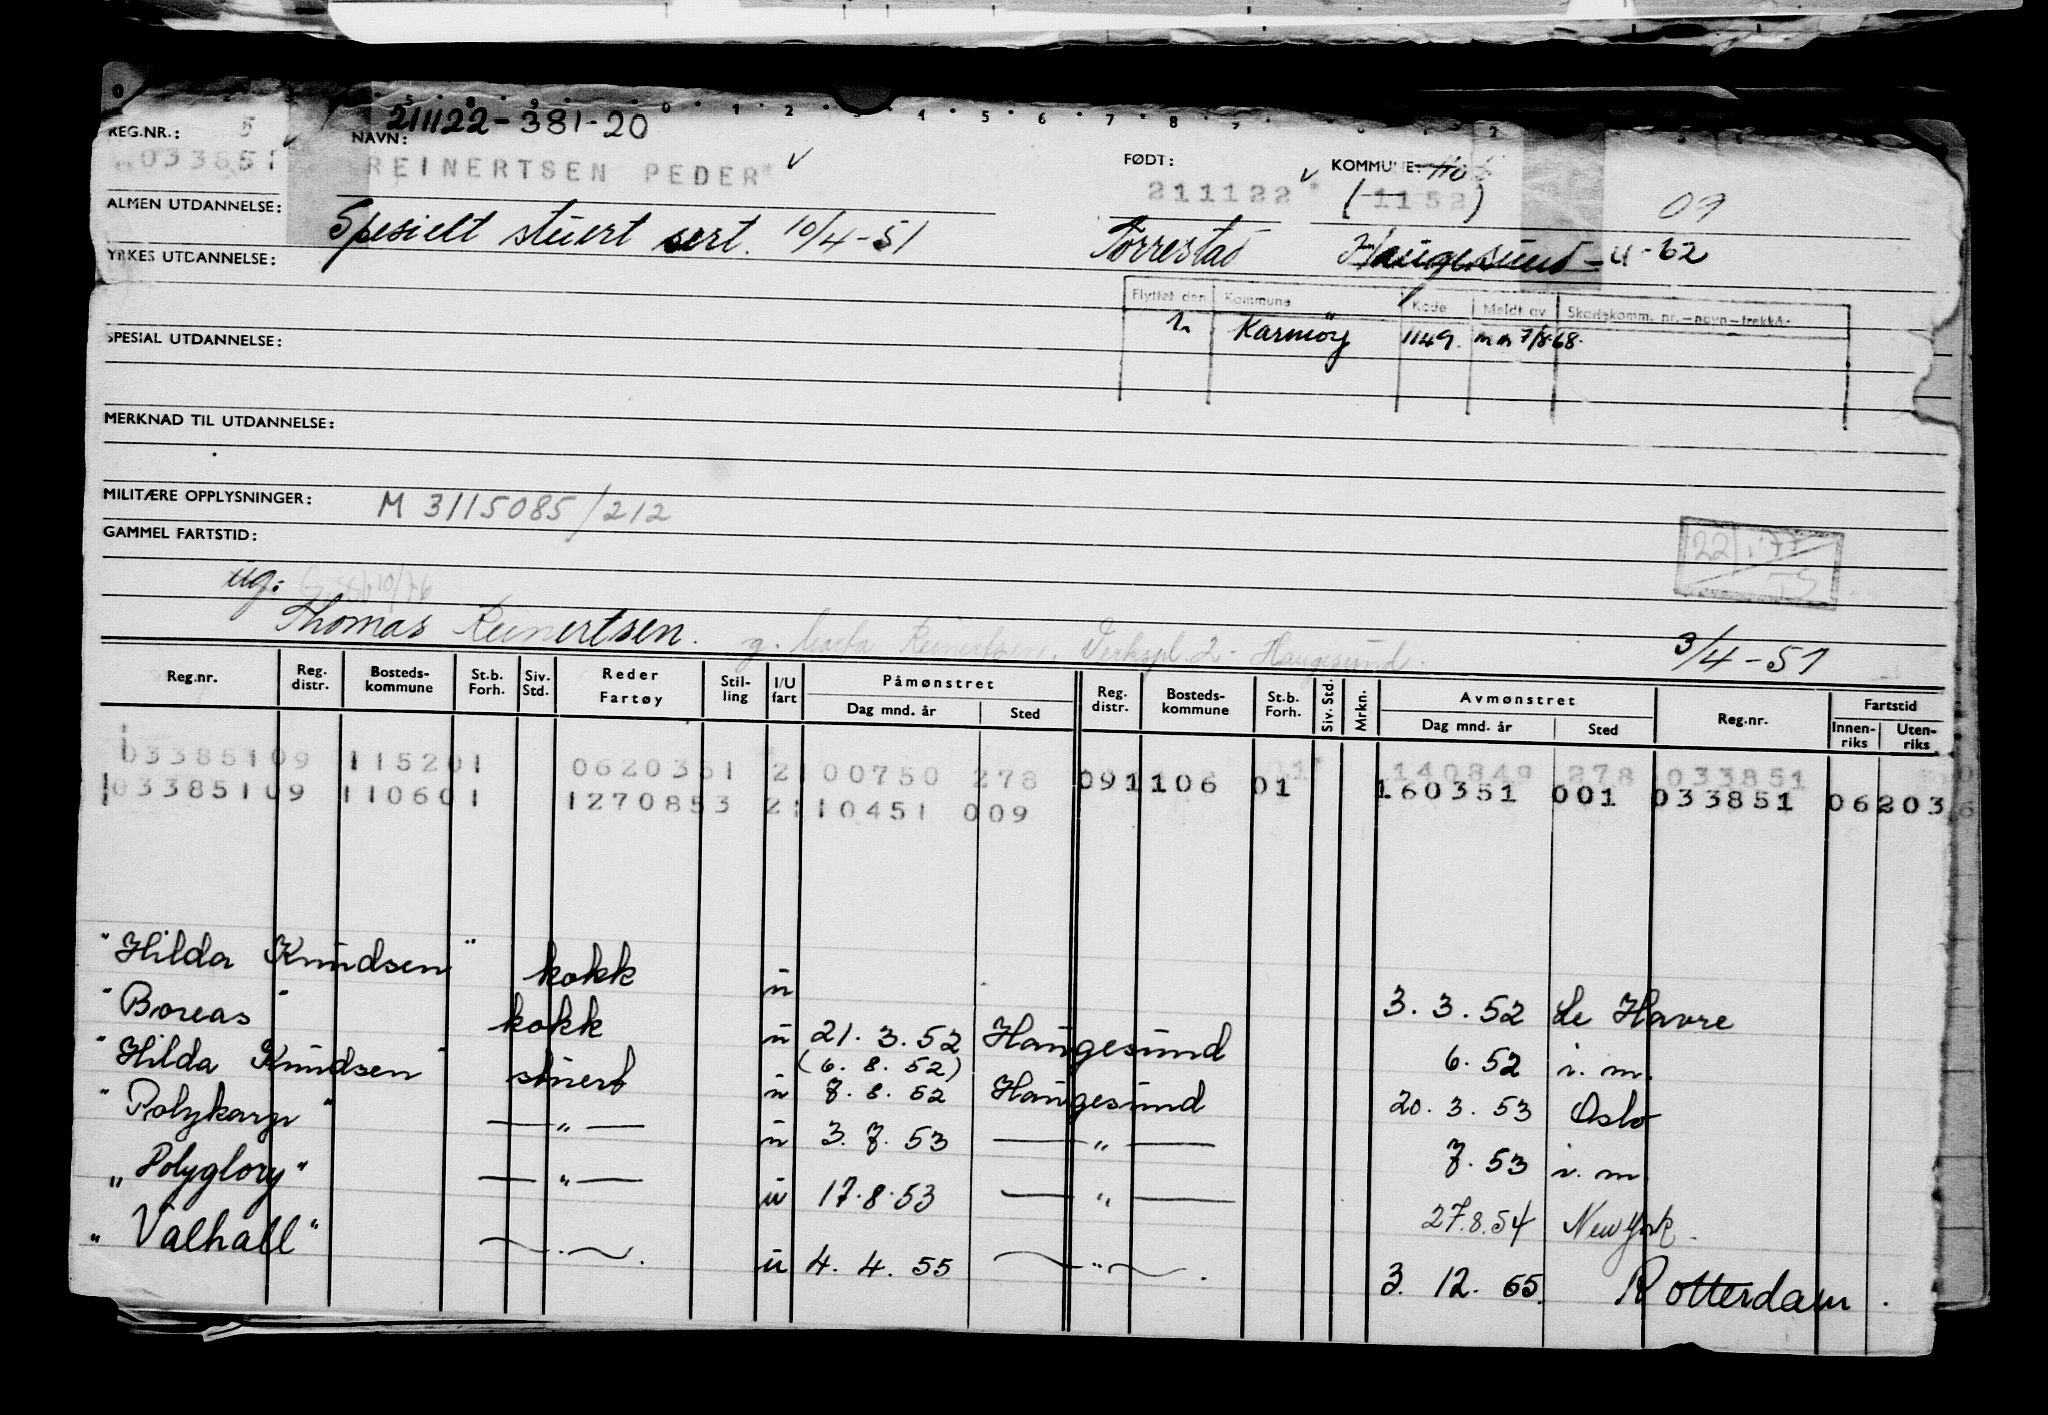 211122-381-20
REG.NR.: 5 NAVN: FØDT: KOMMUNE: 110
033851 REINERTSEN PEDER 211122 (1152) 09
ALMEN UTDANNELSE: Spesielt stuert sert. 10/4-51 Torrestad Haugesund - u-62
YRKES UTDANNELSE:
Flyttet den Kommune Kode Meldt av Skattekomm. nr.-navn-trekkd.
Karmöy 1149. 7/8-68.
SPESIAL UTDANNELSE:
MERKNAD TIL UTDANNELSE:
MILITÆRE OPPLYSNINGER: M 3115085/212
GAMMEL FARTSTID:
22/1-77
ug: 10/76
Thomas Reinertsen. g. Marta Reinertsen. Verkspl. 2 - Haugesund. 3/4-51
Reg.nr. Reg. distr. Bosteds-kommune St.b. Forh. Siv. Std. Reder Fartøy Stil-ling I/U fart Påmønstret Dag mnd. år Sted Reg. distr. Bosteds-kommune St.b. Forh. Siv. Std. Mrkn. Avmønstret Dag mnd. år Sted Reg.nr. Fartstid Innen-riks Uten-riks
03385109 115201 0620351 2 00750 278 140849 278 033851
03385109 110601 1270853 2 110451 009 091106 01 160351 001 033851 06203
"Hilda Knudsen" kokk u 3.3.52 Le Havre
"Boreas" kokk u 21.3.52 Haugesund 6.52 i.m.
(6.8.52)
"Hilda Knudsen" stuert u 7.8.52 Haugesund 20.3.53 Oslo
"Polykarp" — " — u 3.7.53 — " — 7.53 i.m.
"Polyglory" — " — u 17.8.53 — " — 27.8.54 New York.
"Valhall" — " — u 4.4.55 — " — 3.12.65. Rotterdam.